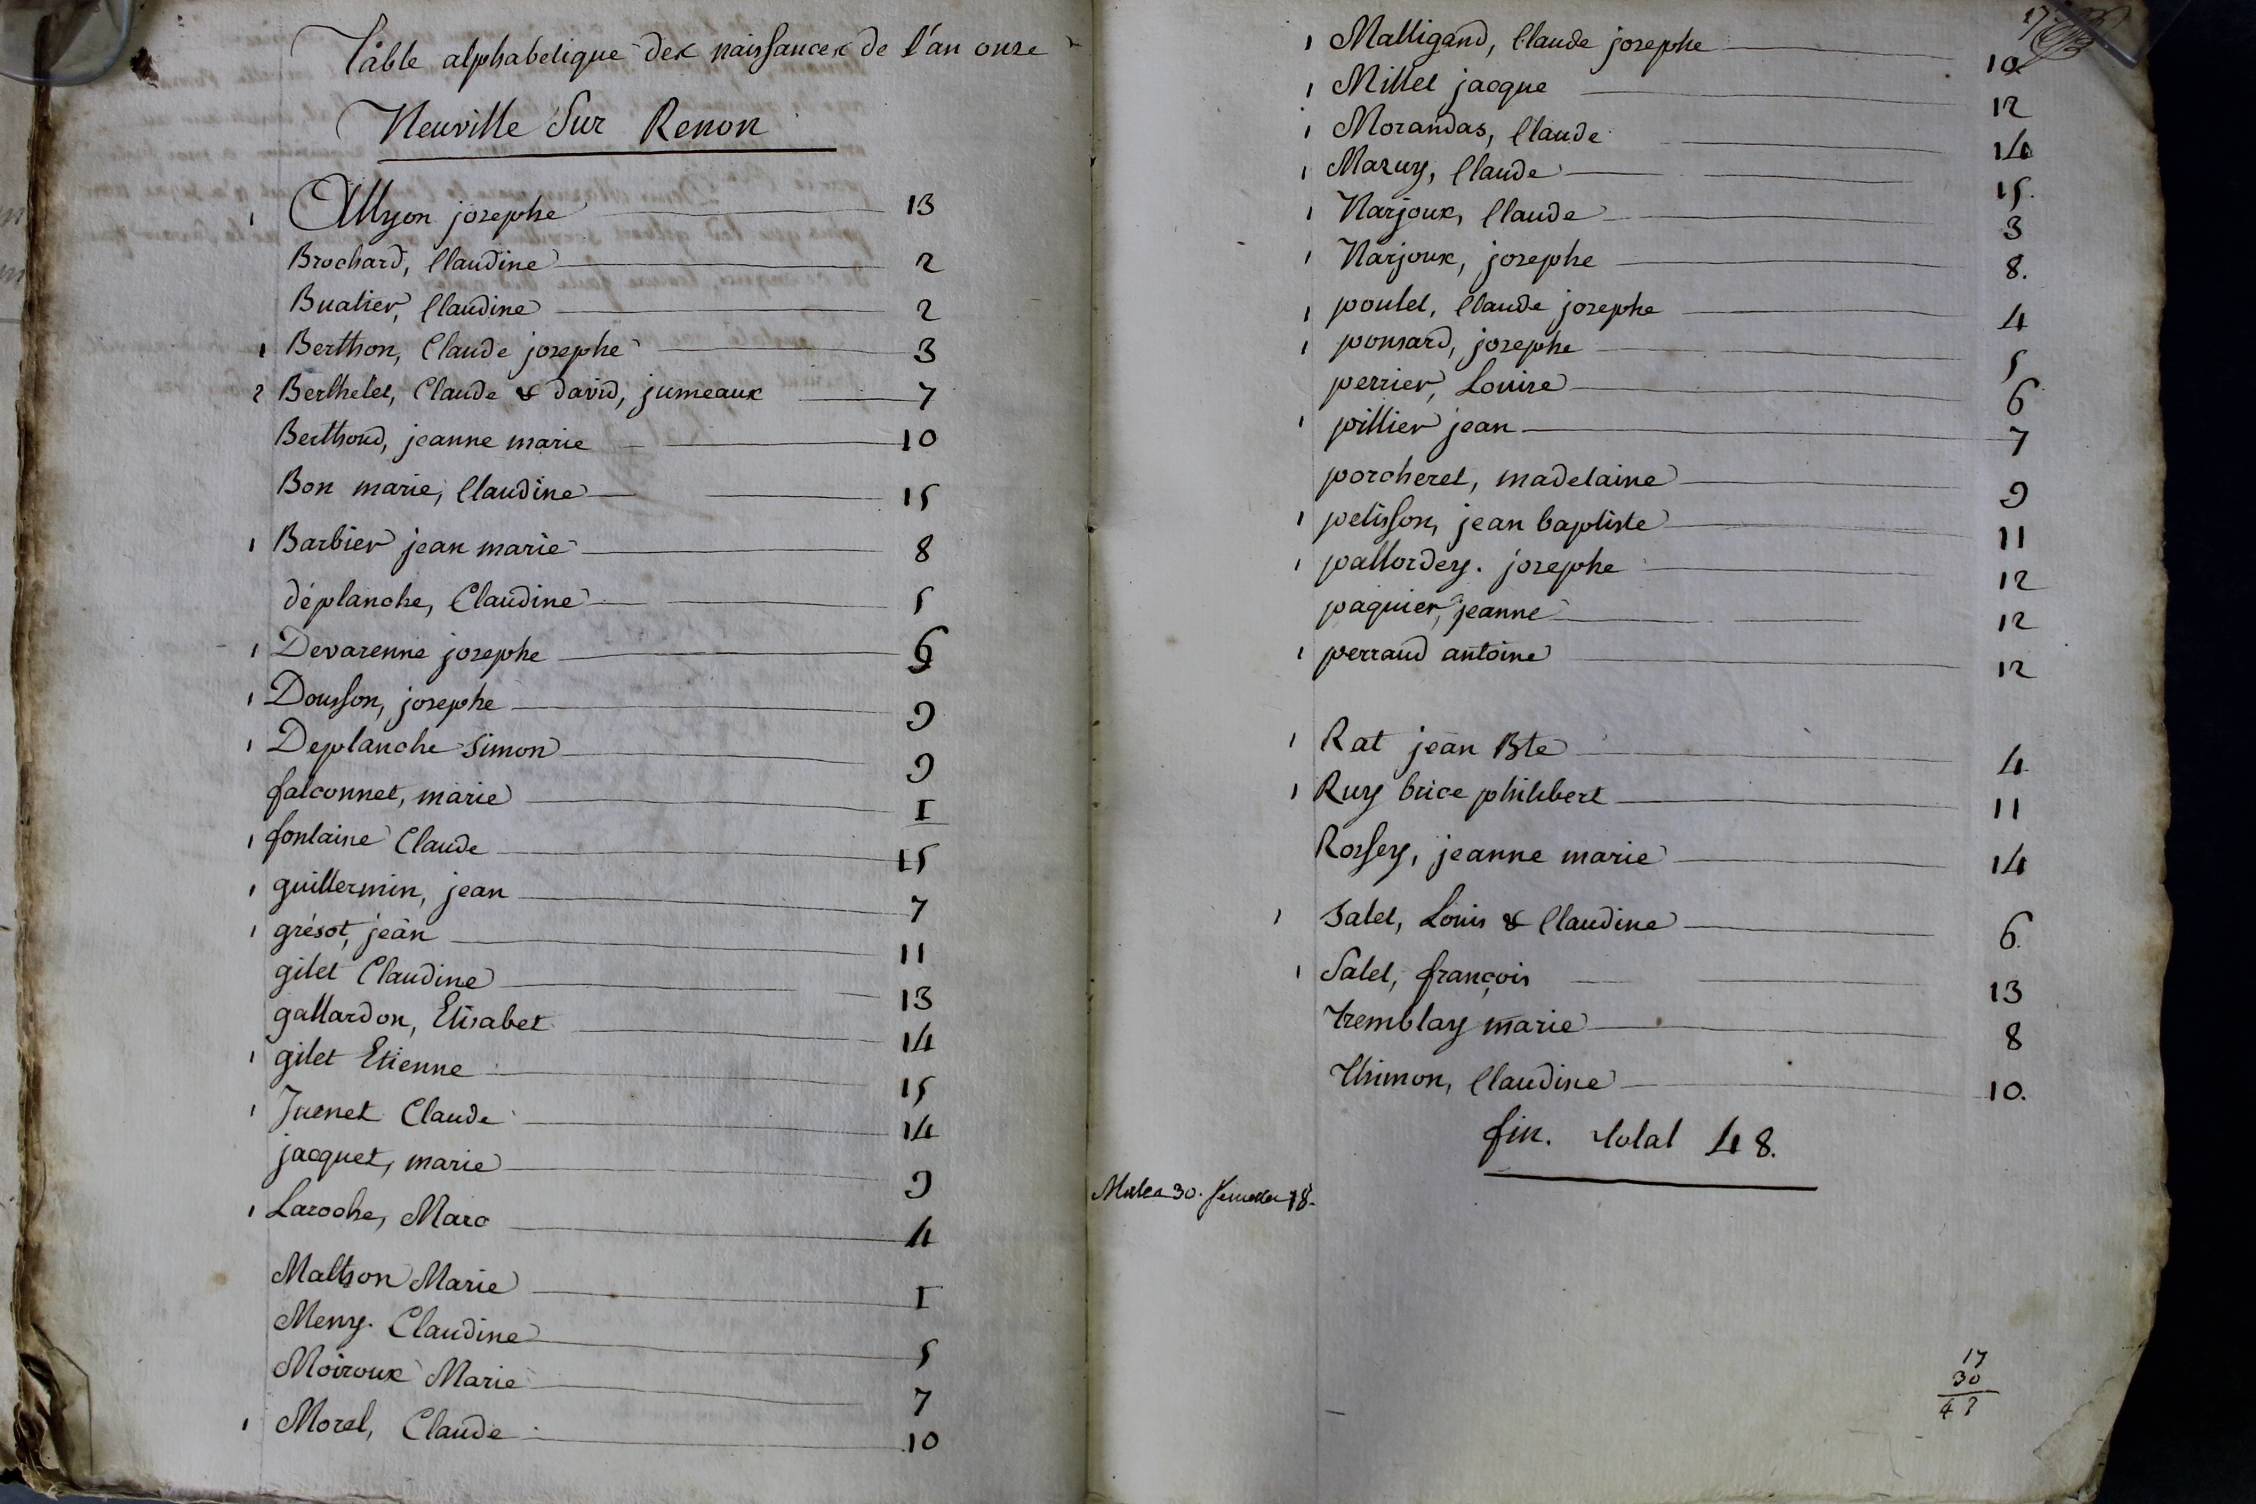 Table alphabetique des naissances de l'an onze
Neuville Sur Renon
1 Allyon josephe 13
Brochard, Claudine 2
Buatier, Claudine 2
1 Berthon, Claude josephe 3
2 Berthelet, Claude & david, jumeaux 7
Berthoud, jeanne marie 10
Bon marie, Claudine 15
1 Barbier jean marie 8
déplanche, Claudine 5
1 Devarenne josephe 6
1 Dousson, josephe 9
1 Deplanche Simon 9
falconnet, marie I
1 fontaine Claude 15
1 guillermin, jean 7
1 grésot, jean 11
gilet Claudine 13
gallardon, Elisabet 14
1 gilet Etienne 15
1 Juenet Claude 14
jacquet, marie 9
1 Laroche, Marc 4
Malhon Marie I
Meny. Claudine 5
Moiroux Marie 7
1 Morel, Claude 10
17
1 Malligand, Claude josephe 10
1 Millet jacque 12
1 Morandas, Claude 14
1 Mazuy, Claude 15.
1 Narjoux, Claude 3
1 Narjoux, josephe 8.
1 poulet, Claude josephe 4
1 ponsard, josephe 5
perrier, Louise 6
1 pillier jean 7
porcheret, madelaine 9
1 pelisson, jean baptiste 11
1 pallordey. josephe 12
paquier, jeanne 12
1 perraud antoine 12
1 Rat jean Bte 4
1 Ruy brice philibert 11
Rossey, jeanne marie 14
1 Salet, Louis & Claudine 6.
1 Salet, françois 13
Tremblay marie 8
Thimon, Claudine 10.
fin. total 48.
Males 30. femelles 18.
17
30
47